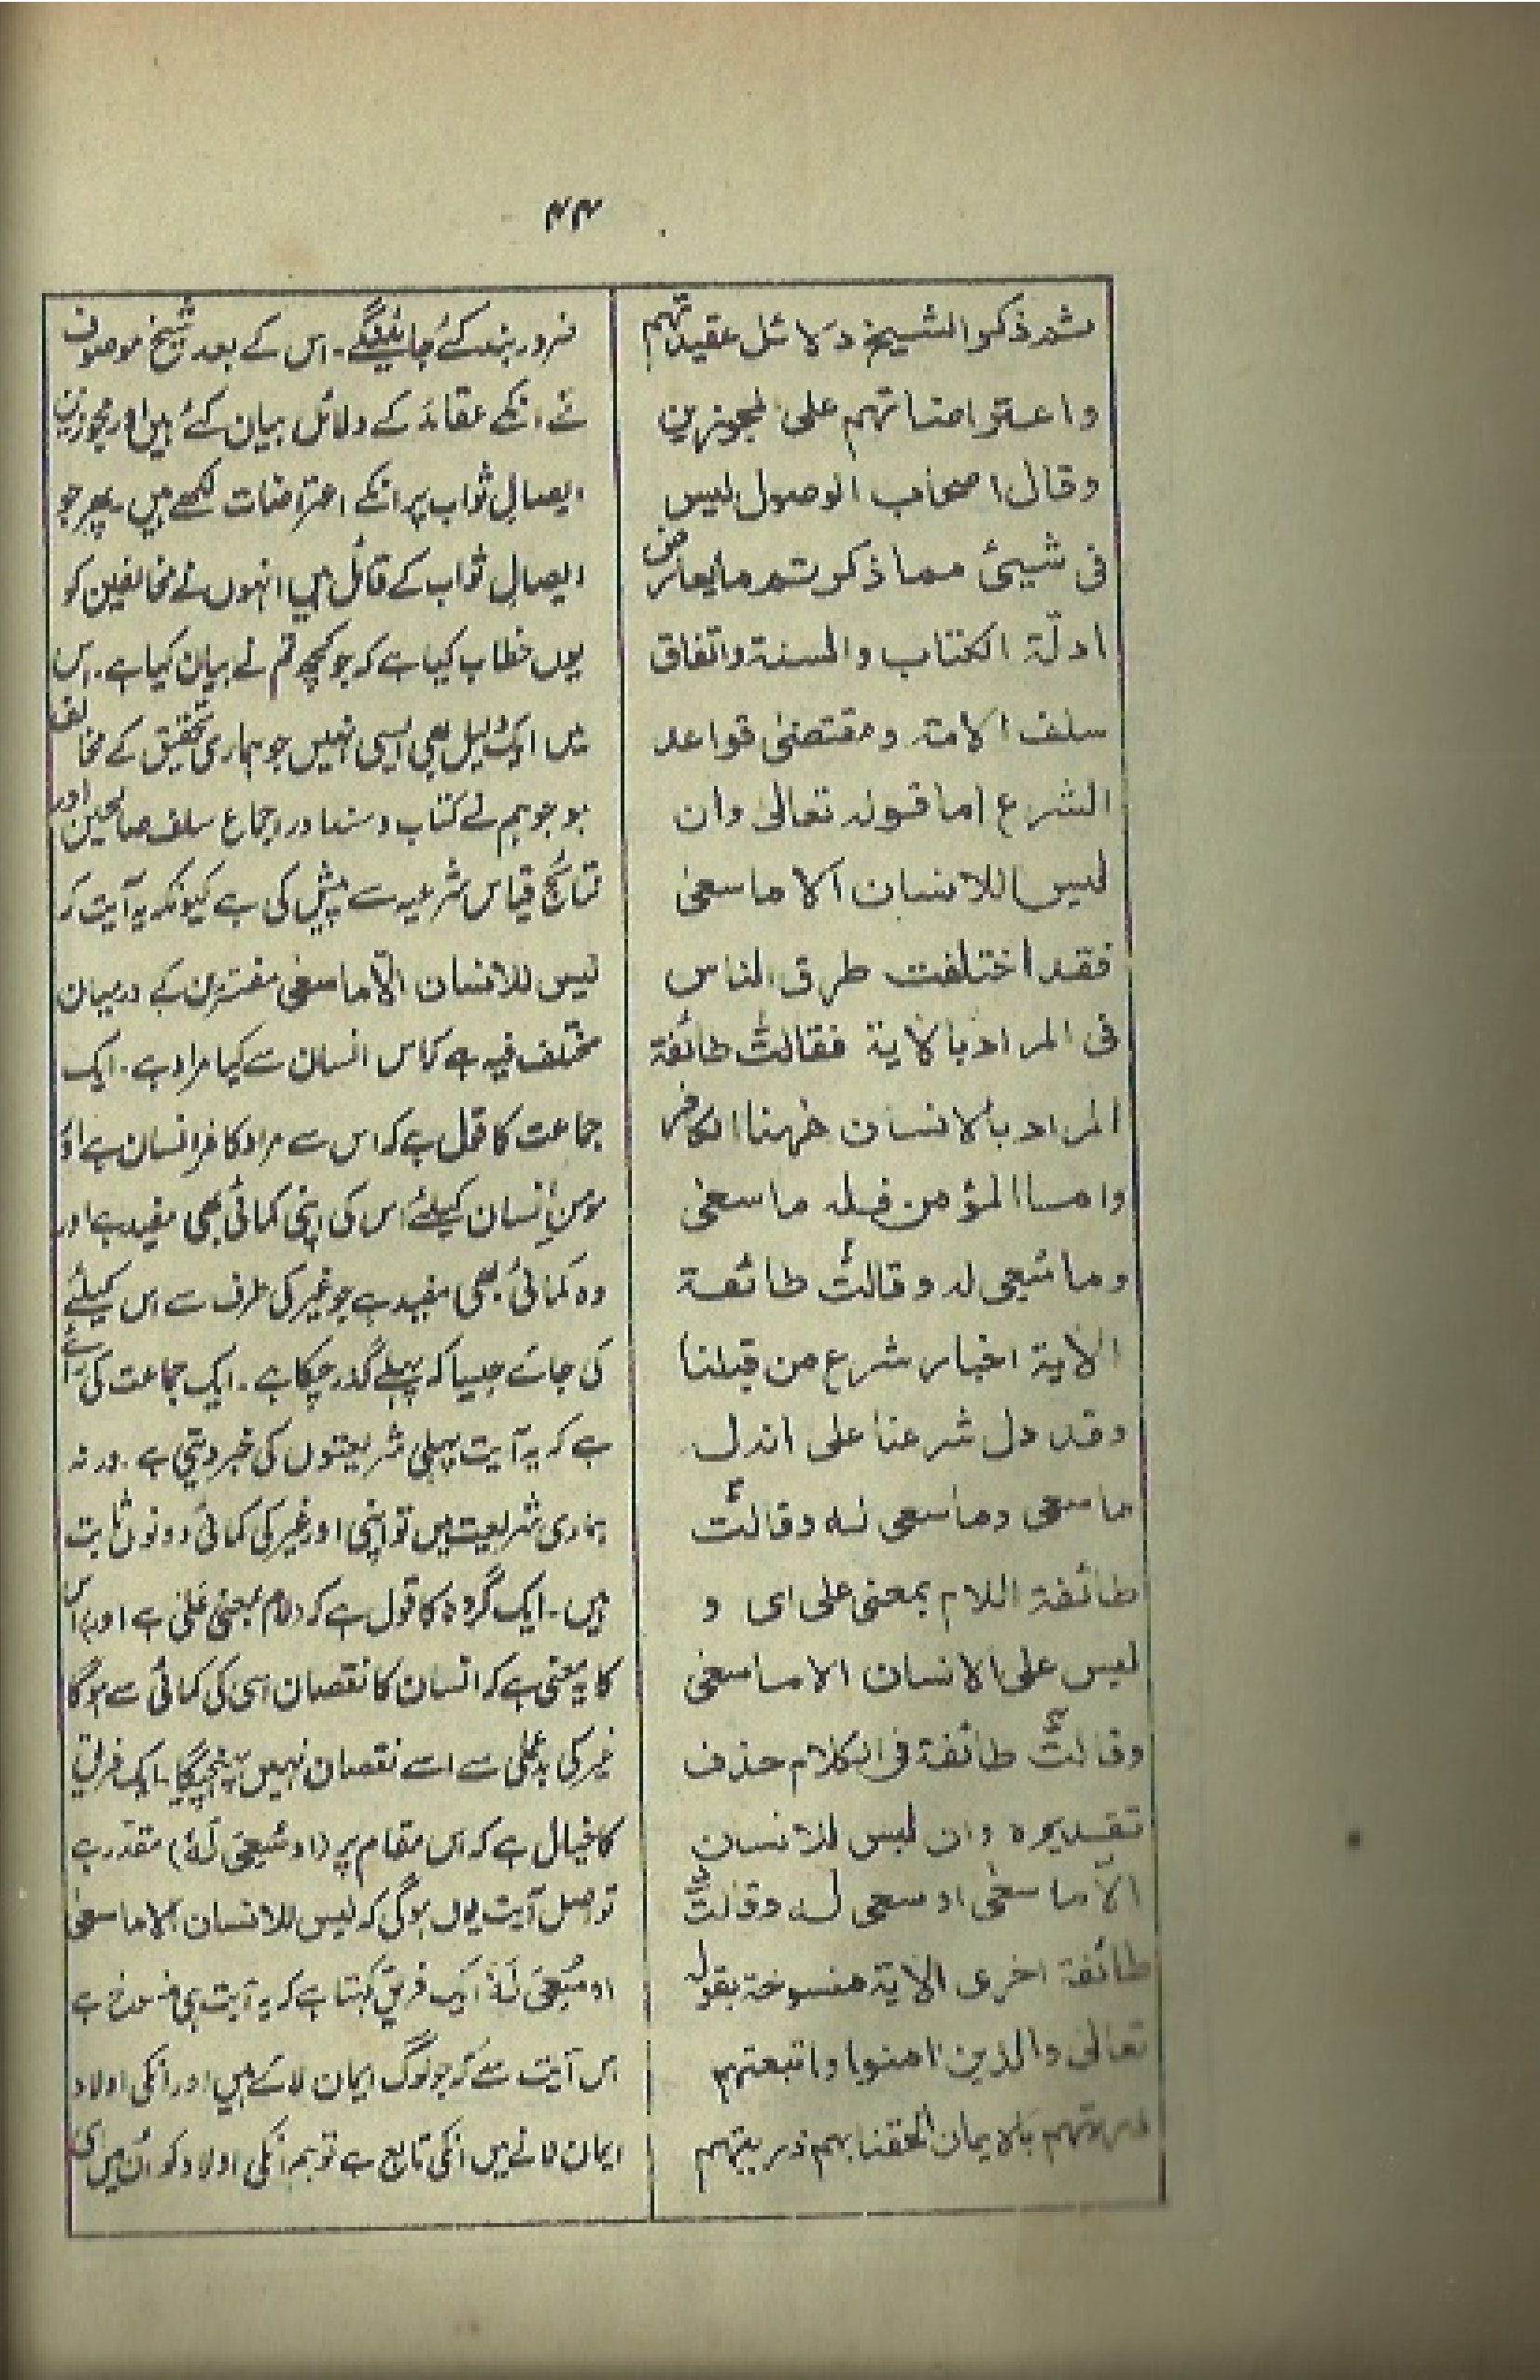 ۴۴
ثم ذكر الشيخ دلائل عقيدتهم
واعتراضاتهم على المجوزين
وقال اصحاب الوصول ليس
فى شيئ مما ذكرتم ما يعارض
ادلّة الكتاب والسنة واتفاق
سلف الامة ومقتضى قواعد
الشرع اما قوله تعالى وان
ليس للانسان الا ما سعى
فقد اختلفت طرق الناس
فى المراد بالاية فقالت طائفة
المراد بالانسان ههنا الكافر
وامسا المؤمن فله ما سعى
وما سُعى له وقالت طائفة
الاية اخبار شرع من قبلنا
وقد دل شرعنا على انه له
ما سعى وما سعى له وقالت
طائفة اللام بمعنى على اى و
ليس على الانسان الا ما سعى
وقالت طائفة فى الكلام حذف
تقديره وان ليس للانسان
الّا ما سعى او سعى له وقالت
طائفة اخرى الاية منسوخة بقوله
تعالى والذين امنوا واتبعتهم
ذريتهم بالايمان الحقنا بهم ذريتهم
ضرور بند کئے جائینگے۔ اس کے بعد شیخ موصوف
نے انکے عقائد کے دلائل بیان کئے ہیں اور مجوزین
ایصال ثواب پر انکے اعتراضات لکھے ہیں۔ پھر جو
ایصال ثواب کے قائل ہیں انہوں نے مخالفین کو
یوں خطاب کیا ہے کہ جو کچھ تم نے بیان کیا ہے۔ اس
میں ایک دلیل بھی ایسی نہیں جو ہماری تحقیق کے مخالف
ہو جو ہم نے کتاب و سنت اور اجماع سلف صالحین اور
نتائج قیاس شرعیہ سے پیش کی ہے کیونکہ یہ آیت کہ
لیس للانسان الّا ما سعى مفسرین کے درمیان
مختلف فیہ ہے کہ اس انسان سے کیا مراد ہے۔ ایک
جماعت کا قول ہے کہ اس سے مراد کافر انسان ہے اور
مومن انسان کیلئے اس کی اپنی کمائی بھی مفید ہے اور
وہ کمائی بھی مفید ہے جو غیر کی طرف سے اس کیلئے
کی جائے جیسا کہ پہلے گذر چکا ہے۔ ایک جماعت کی رائے
ہے کہ یہ آیت پہلی شریعتوں کی خبر دیتی ہے۔ ورنہ
ہماری شریعت میں تو اپنی اور غیر کی کمائی دونوں ثابت
ہیں۔ ایک گروہ کا قول ہے کہ (لام بمعنی علیٰ ہے اور) اس
کا یہ معنی ہے کہ انسان کا نقصان اسی کی کمائی سے ہوگا
غیر کی بدعملی سے اسے نقصان نہیں پہنچیگا۔ ایک فریق
کا خیال ہے کہ اس مقام پر (او سُعِىَ لَهٗ) مقدر ہے
تو اصل آیت یوں ہوگی کہ لیس للانسان الا ما سعى
او سُعِىَ لَهٗ ایک فریق کہتا ہے کہ یہ آیت ہی منسوخ ہے
اس آیت سے کہ جو لوگ ایمان لائے ہیں اور انکی اولاد
ایمان لانے میں انکی تابع ہے تو ہم انکی اولاد کو ان میں ہی